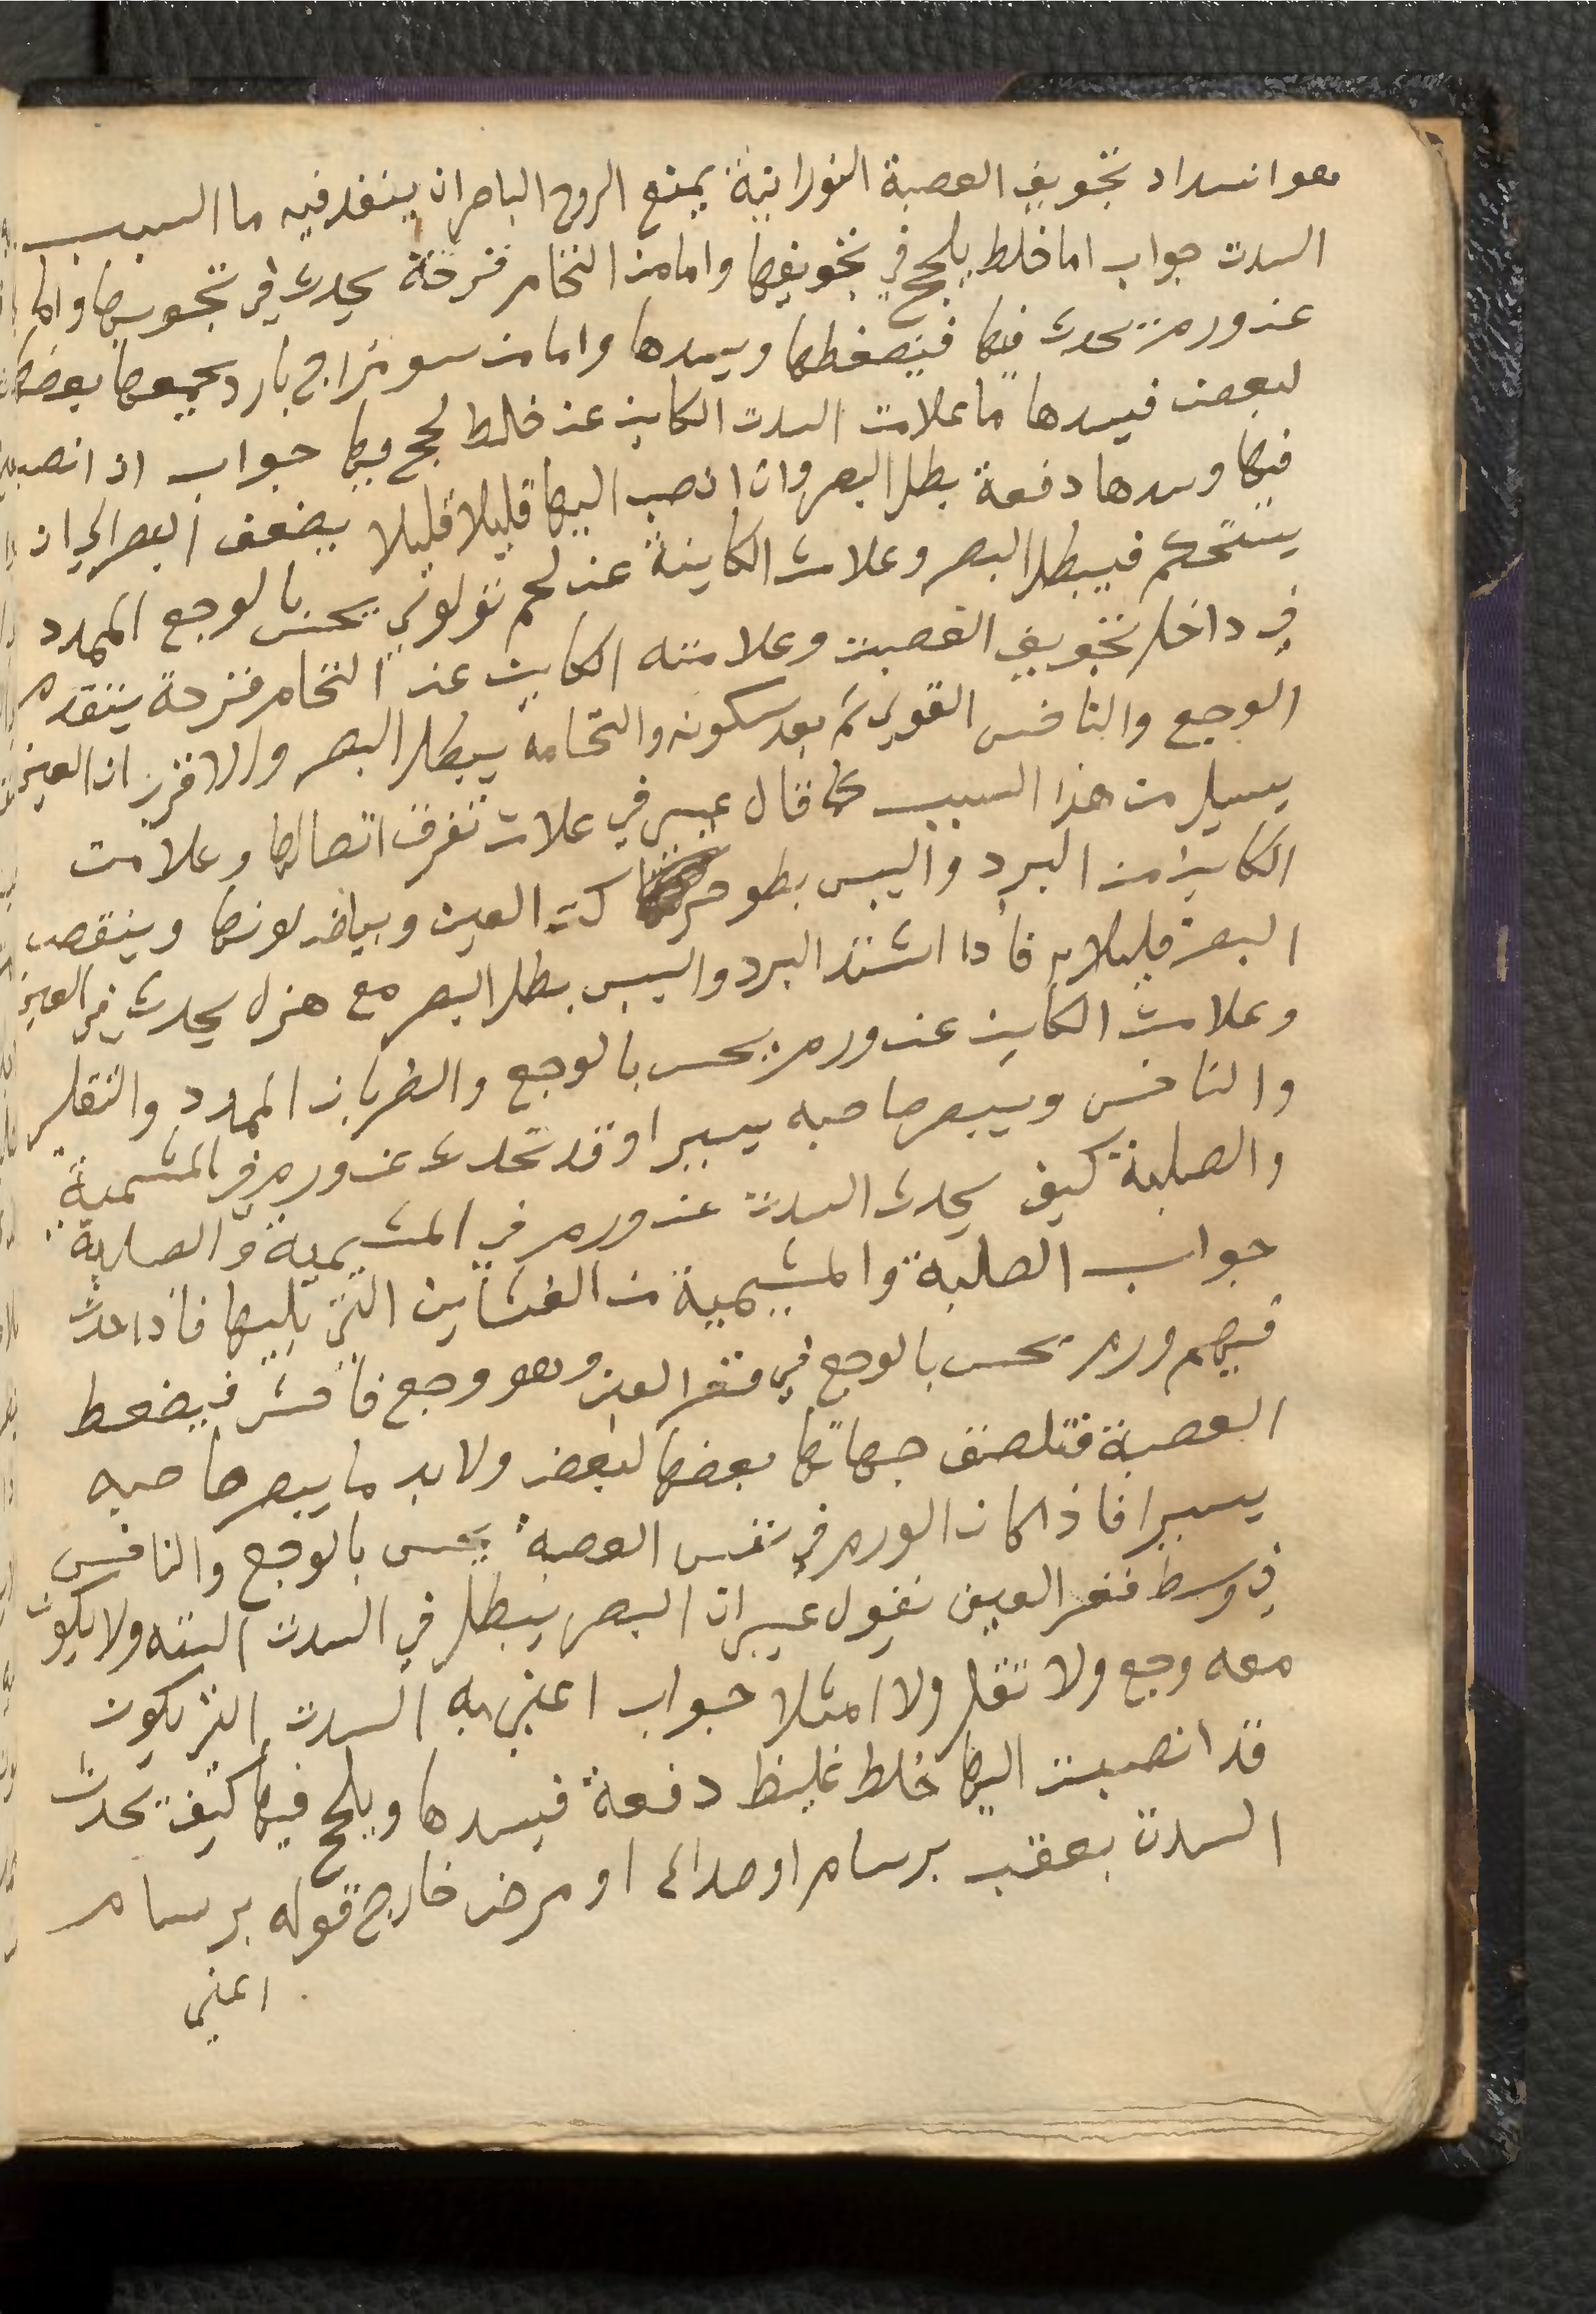 هو انسداد تجويف العصبة النورانية يمنع الروح الباصر ان ينفد فيه ما السبب
السدت جواب اما خلط يلحج في تجويفها واما من التحام قرحة يحدث في تجويفها واما
عن ورم يحدث فيها فيضغطها ويسدها واما من سو مزاج بارد يجمعها بعضها
لبعض فيسدها ما علامت السدت الكاين عن خلط لحج فيها جواب ان انصب
فيها وسدها دفعة بطل البصر وان انصب اليها قليلا قليلا يضعف البصر الي ان
يستحكم فيبطل البصر وعلامت الكاينة عن لحم تولولي يحس بالوجع الممدد
في داخل تجويف العصبت وعلامته الكاين عن التحام قرحة يتقدم
الوجع والناخس القوي ثم بعد سكونه والتحامه يبطل البصر والاقرب ان العين
يسيل من هذا السبب كما قال عيسى في علامت تفرق اتصالها وعلامت
الكاين من البرد واليبس بطو حركت العين وبياض لونها وينقص
البصر قليلا فاذا اشتد البرد واليبس بطل البصر مع هزل يحدث في العين
وعلامت الكاين عن ورم يحس بالوجع والضربان الممدد والثقل
والناخس ويبصر صاحبه يسيرا وقد تحدث عن ورم في المشيمية
والصلبة كيف يحدث السدت عن ورم في المشيمية والصلبة
جواب الصلبة والمشيمية من الغشاين التي يليها فاذا حدث
فيهم ورم يحس بالوجع في قعر العين وهو وجع فاحش فيضغط
العصبة فتلصق جهاتها بعضها لبعض ولا بد ما يبصر صاحبه
يسيرا فاذا كان الورم في نفس العصبة يحس بالوجع والناخس
في وسط قعر العين نقول عيسى ان البصر يبطل في السدت البته ولا يكون
معه وجع ولا ثقل ولا امتلا جواب اعني به السدت التي يكون
قد انصبت اليها خلط غليظ دفعة فيسدها ويلحج فيها كيف تحدث
السدت بعقب برسام او صداع او مرض خارج قوله برسام
اعني